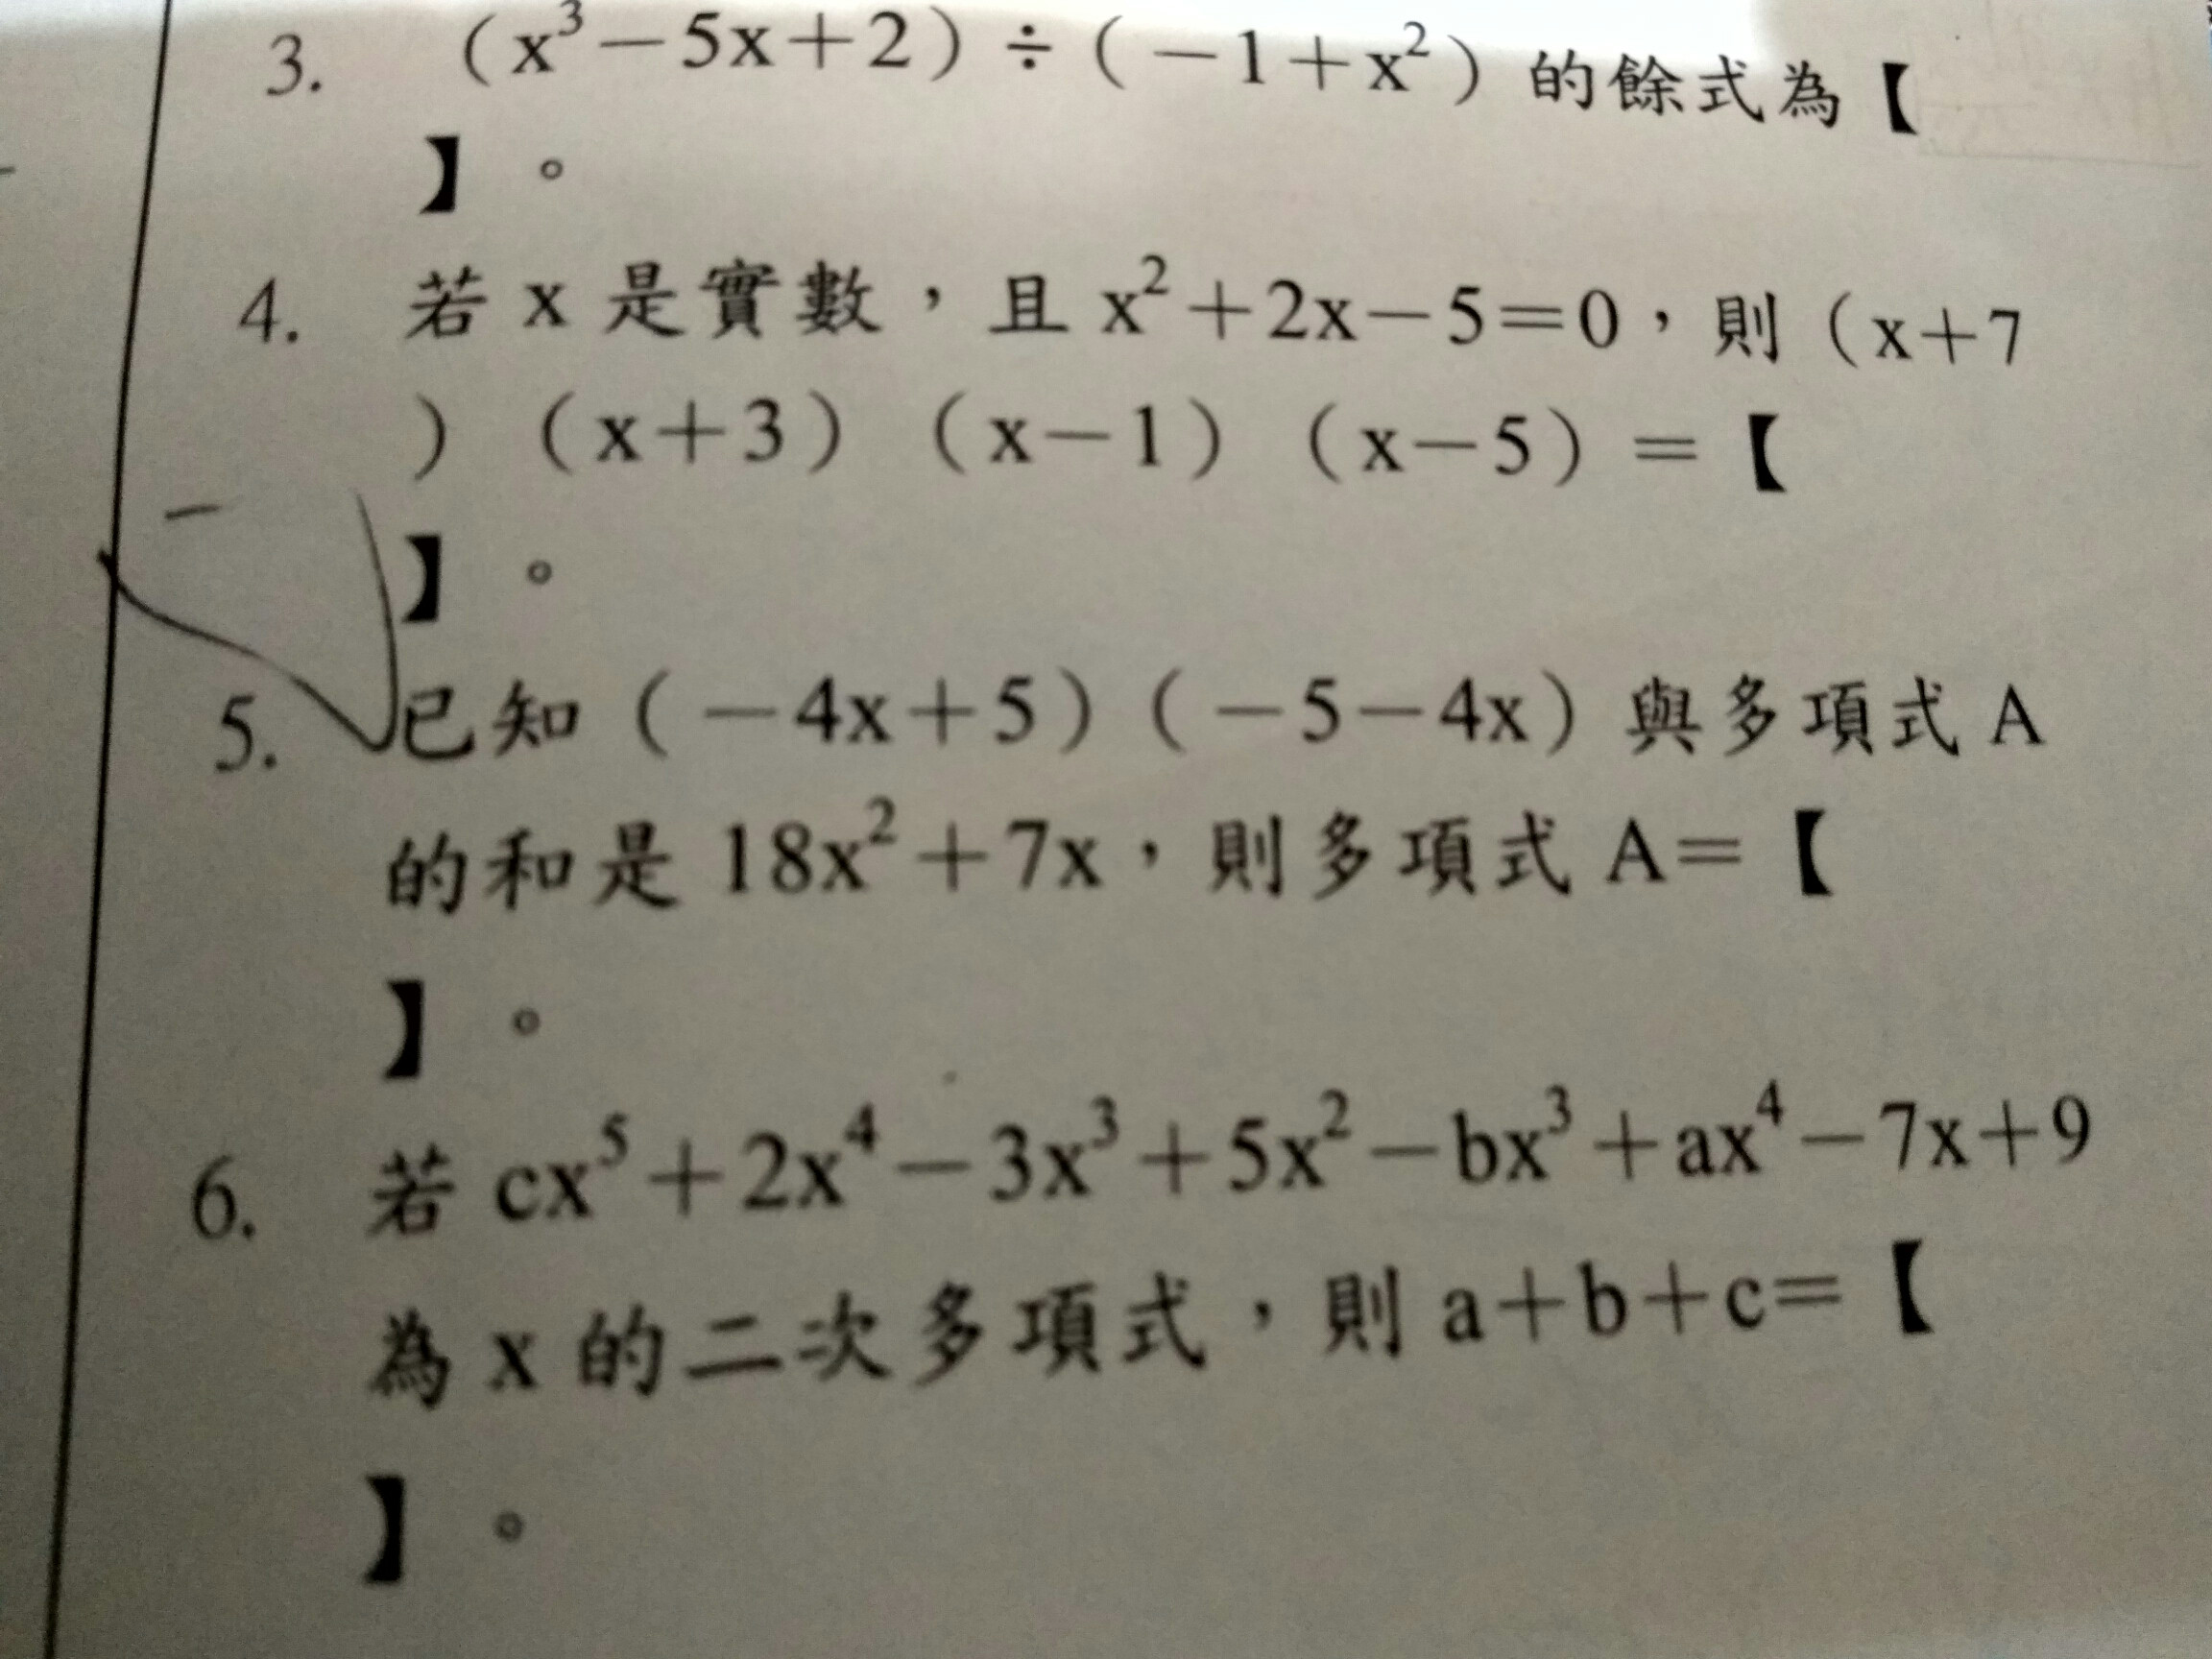 3. （x³－5x＋2）÷（－1＋x²）的餘式為【
】。
4. 若 x 是實數，且 x²＋2x－5＝0，則（x＋7
）（x＋3）（x－1）（x－5）＝【
】。
5. 已知（－4x＋5）（－5－4x）與多項式 A
的和是 18x²＋7x，則多項式 A＝【
】。
6. 若 cx⁵＋2x⁴－3x³＋5x²－bx³＋ax⁴－7x＋9
為 x 的二次多項式，則 a＋b＋c＝【
】。